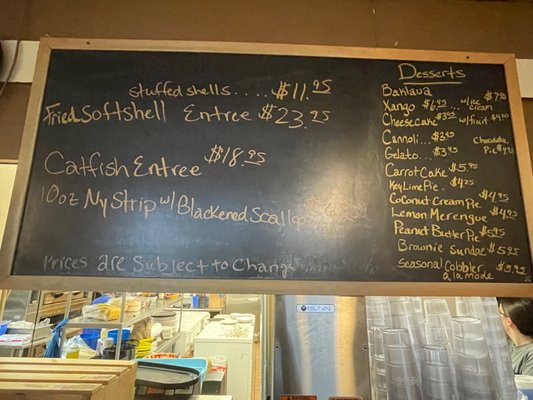 stuffed shells..... $11.95
Fried Softshell Entree $23.95
Catfish Entree $18.95
10oz Ny Strip w/ Blackened Scallo
Prices are Subject to Chang
Desserts
Baklava
Xango $6.95... w/ice cream $7.95
Cheesecake $3.95 w/fruit $4.00
Cannoli... $3.95
Gelato... $3.95
Chocolate Pie $4.95
Carrot Cake $5.95
Key Lime Pie. $4.25
Coconut Cream Pie $4.95
Lemon Merengue $4.95
Peanut Butter Pie $5.95
Brownie Sundae $5.95
Seasonal Cobbler $5.95
a la mode
BUNN